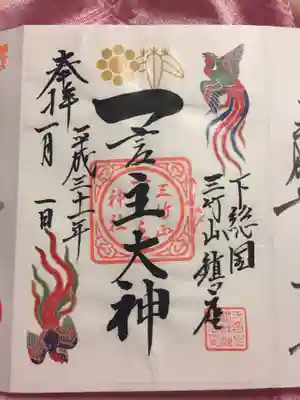 下総国
三竹山鎮座
一言主大神
三竹山
神社
平成三十一年
奉拝
一月一日